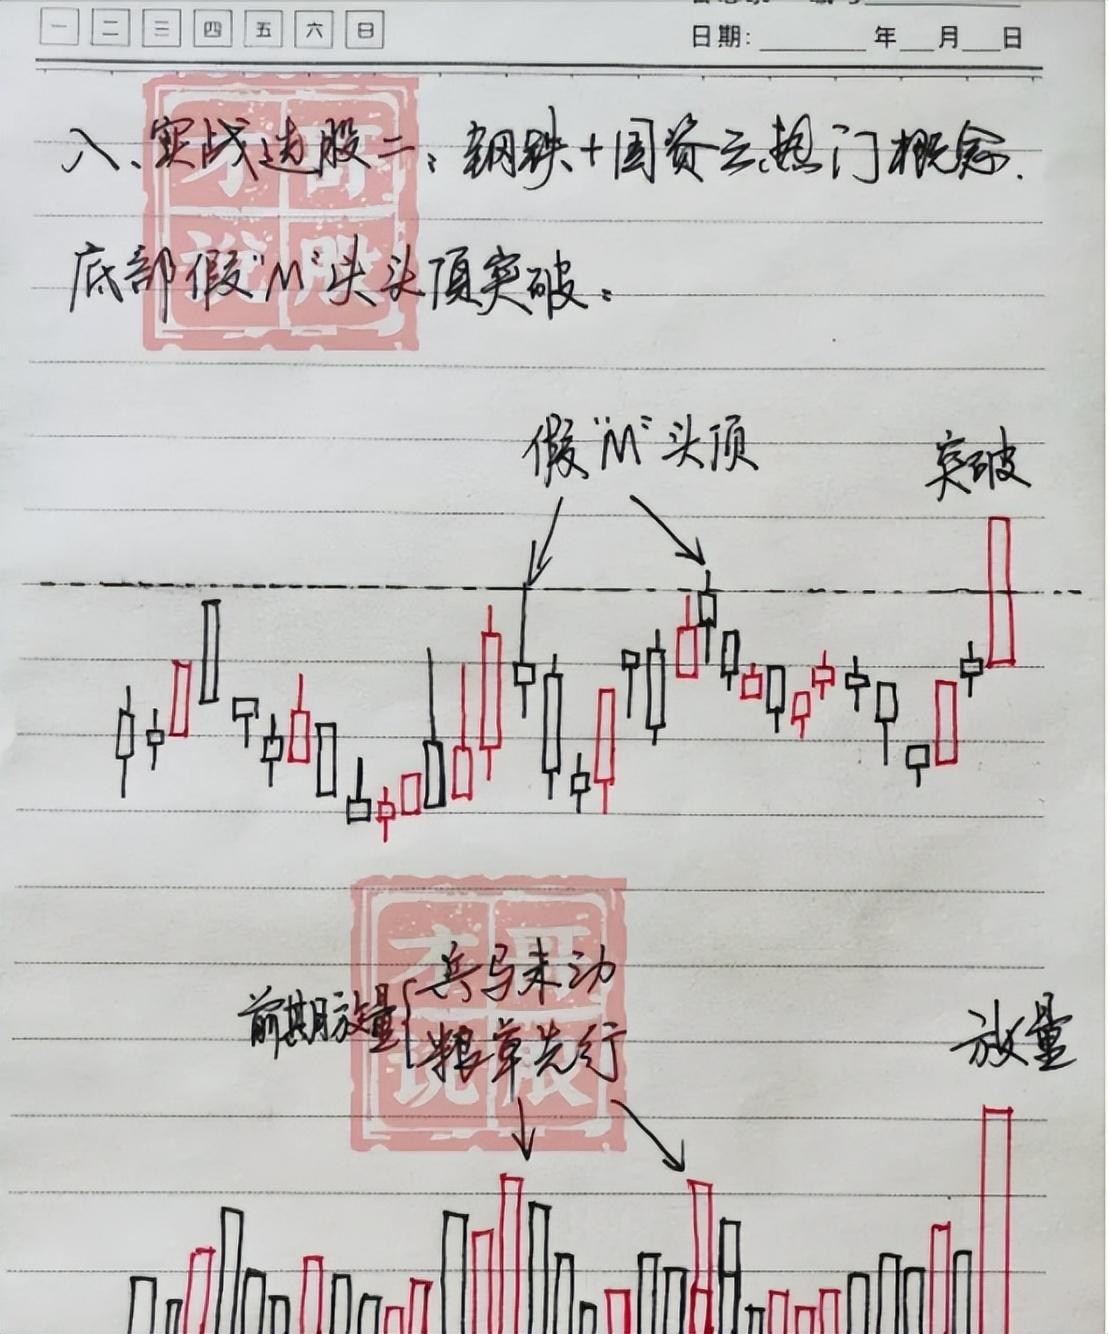 一 二 三 四 五 六 日
日期: 年 月 日
八、实战选股二:钢铁+国资云热门概念.
底部假"M"头头顶突破:
假"M"头顶
突破
前期放量{兵马未动
粮草先行
放量